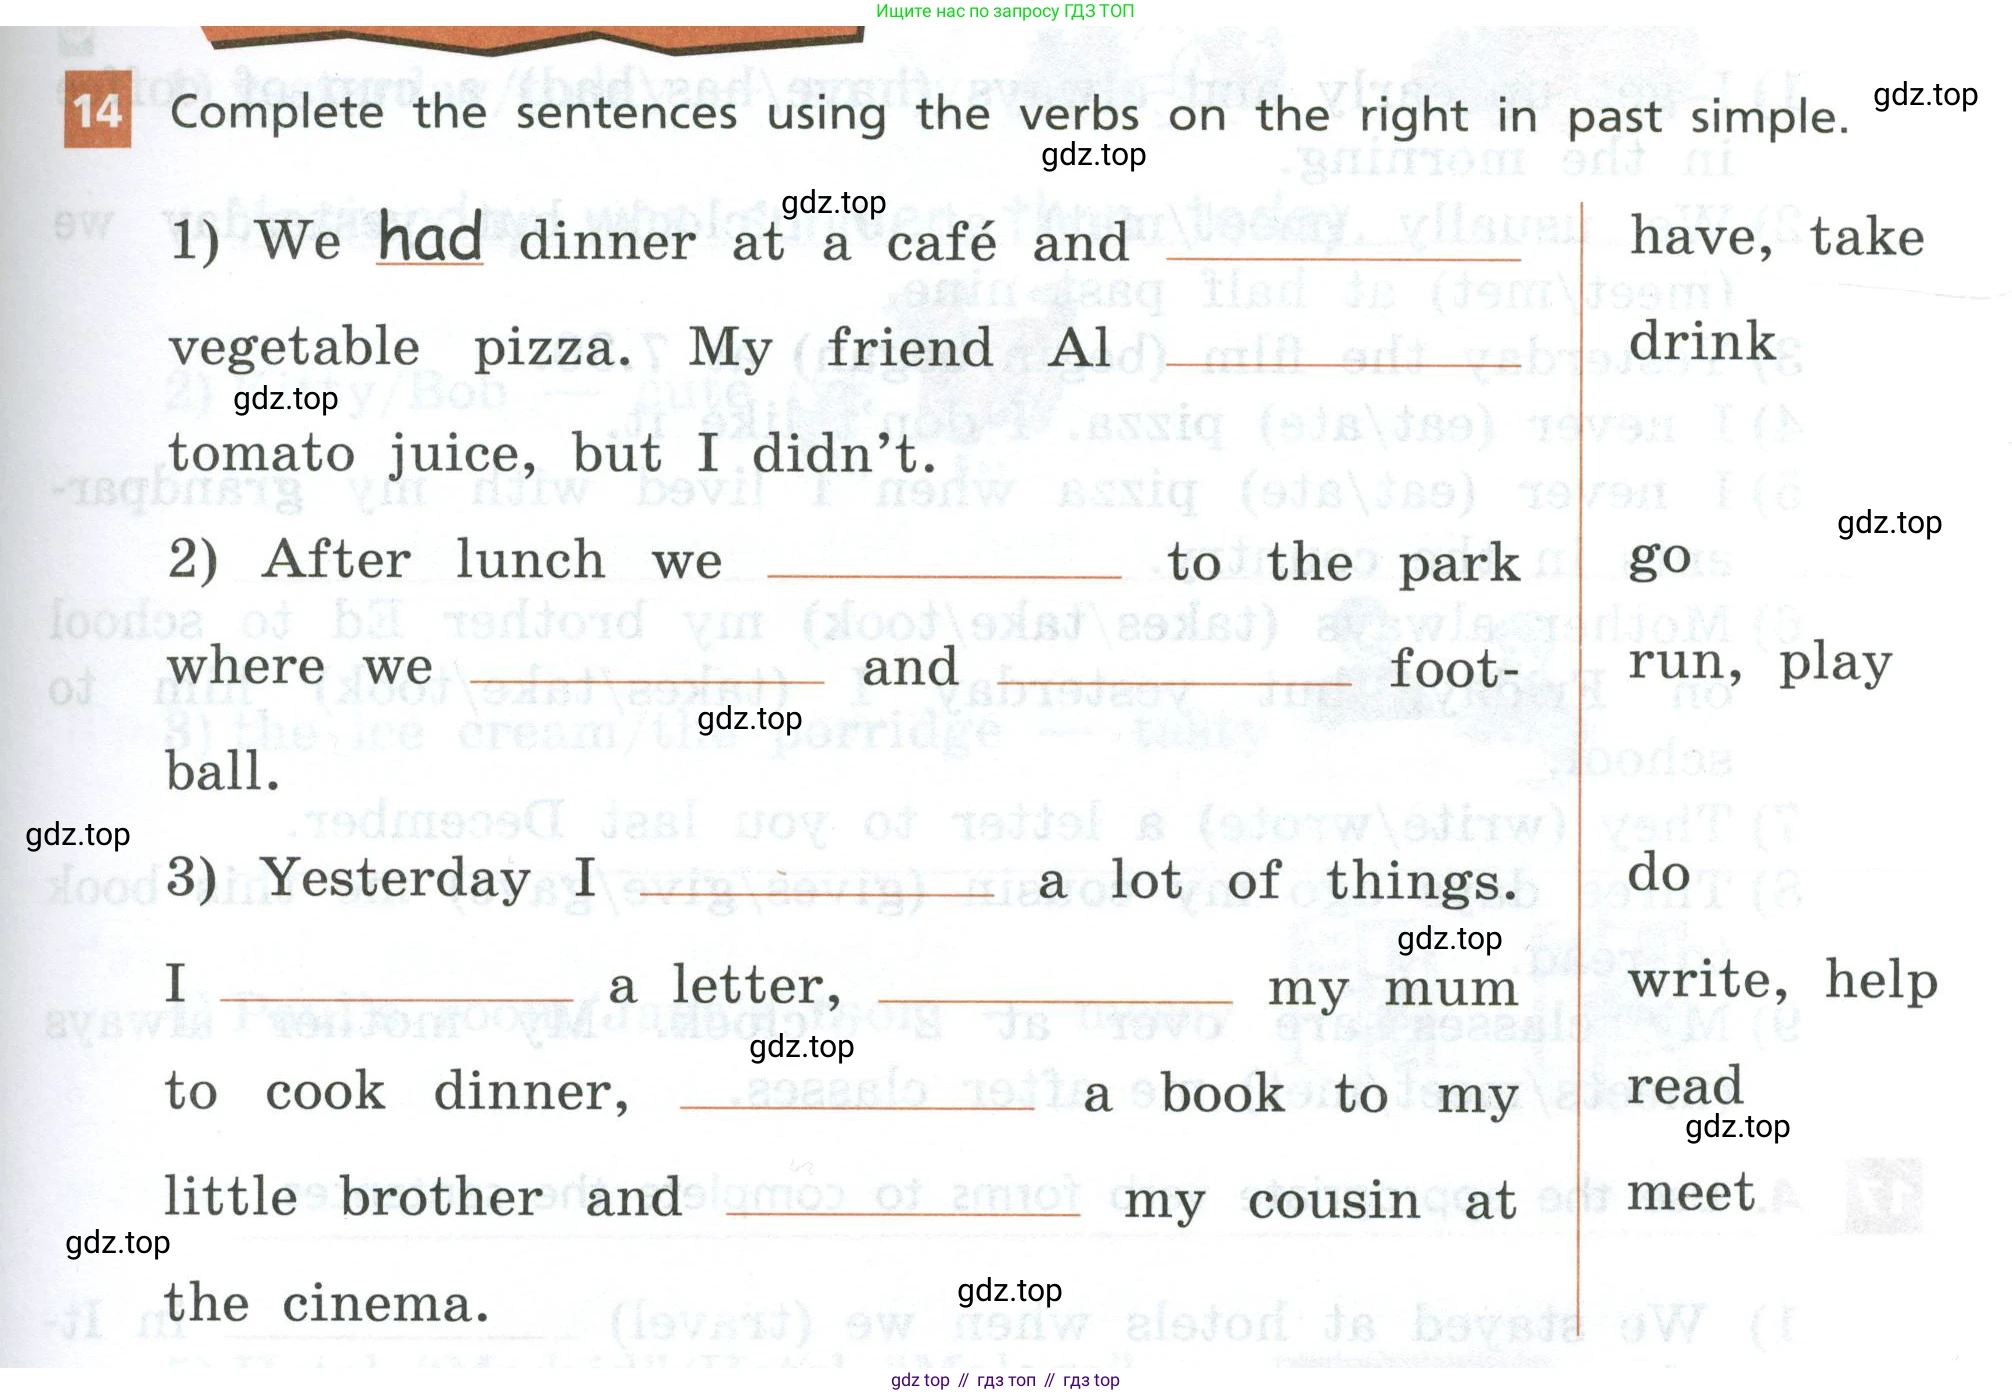 Ищите нас по запросу ГДЗ ТОП
14 Complete the sentences using the verbs on the right in past simple.
gdz.top
gdz.top
gdz.top
1) We had dinner at a café and have, take
vegetable pizza. My friend Al drink
gdz.top
tomato juice, but I didn't.
gdz.top
2) After lunch we to the park go
where we and foot- run, play
gdz.top
ball.
gdz.top
3) Yesterday I a lot of things. do
gdz.top
I a letter, my mum write, help
gdz.top
to cook dinner, a book to my read
gdz.top
little brother and my cousin at meet
gdz.top
the cinema.
gdz.top
gdz top // гдз топ // гдз top